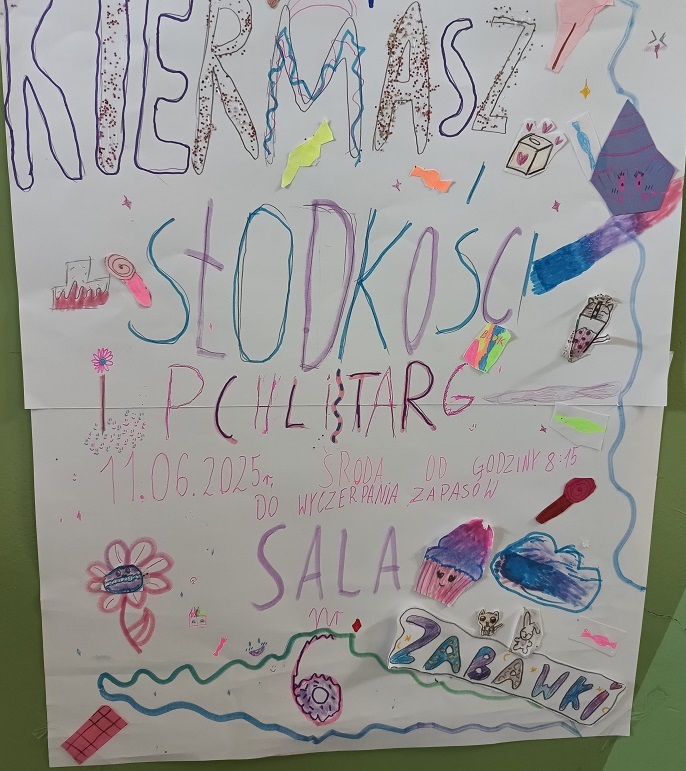 KIERMASZ
SŁODKOŚCI
PCHLI TARG
11.06.2025r. ŚRODA OD GODZINY 8:15
DO WYCZERPANIA ZAPASÓW
SALA
nr
6
ZABAWKI